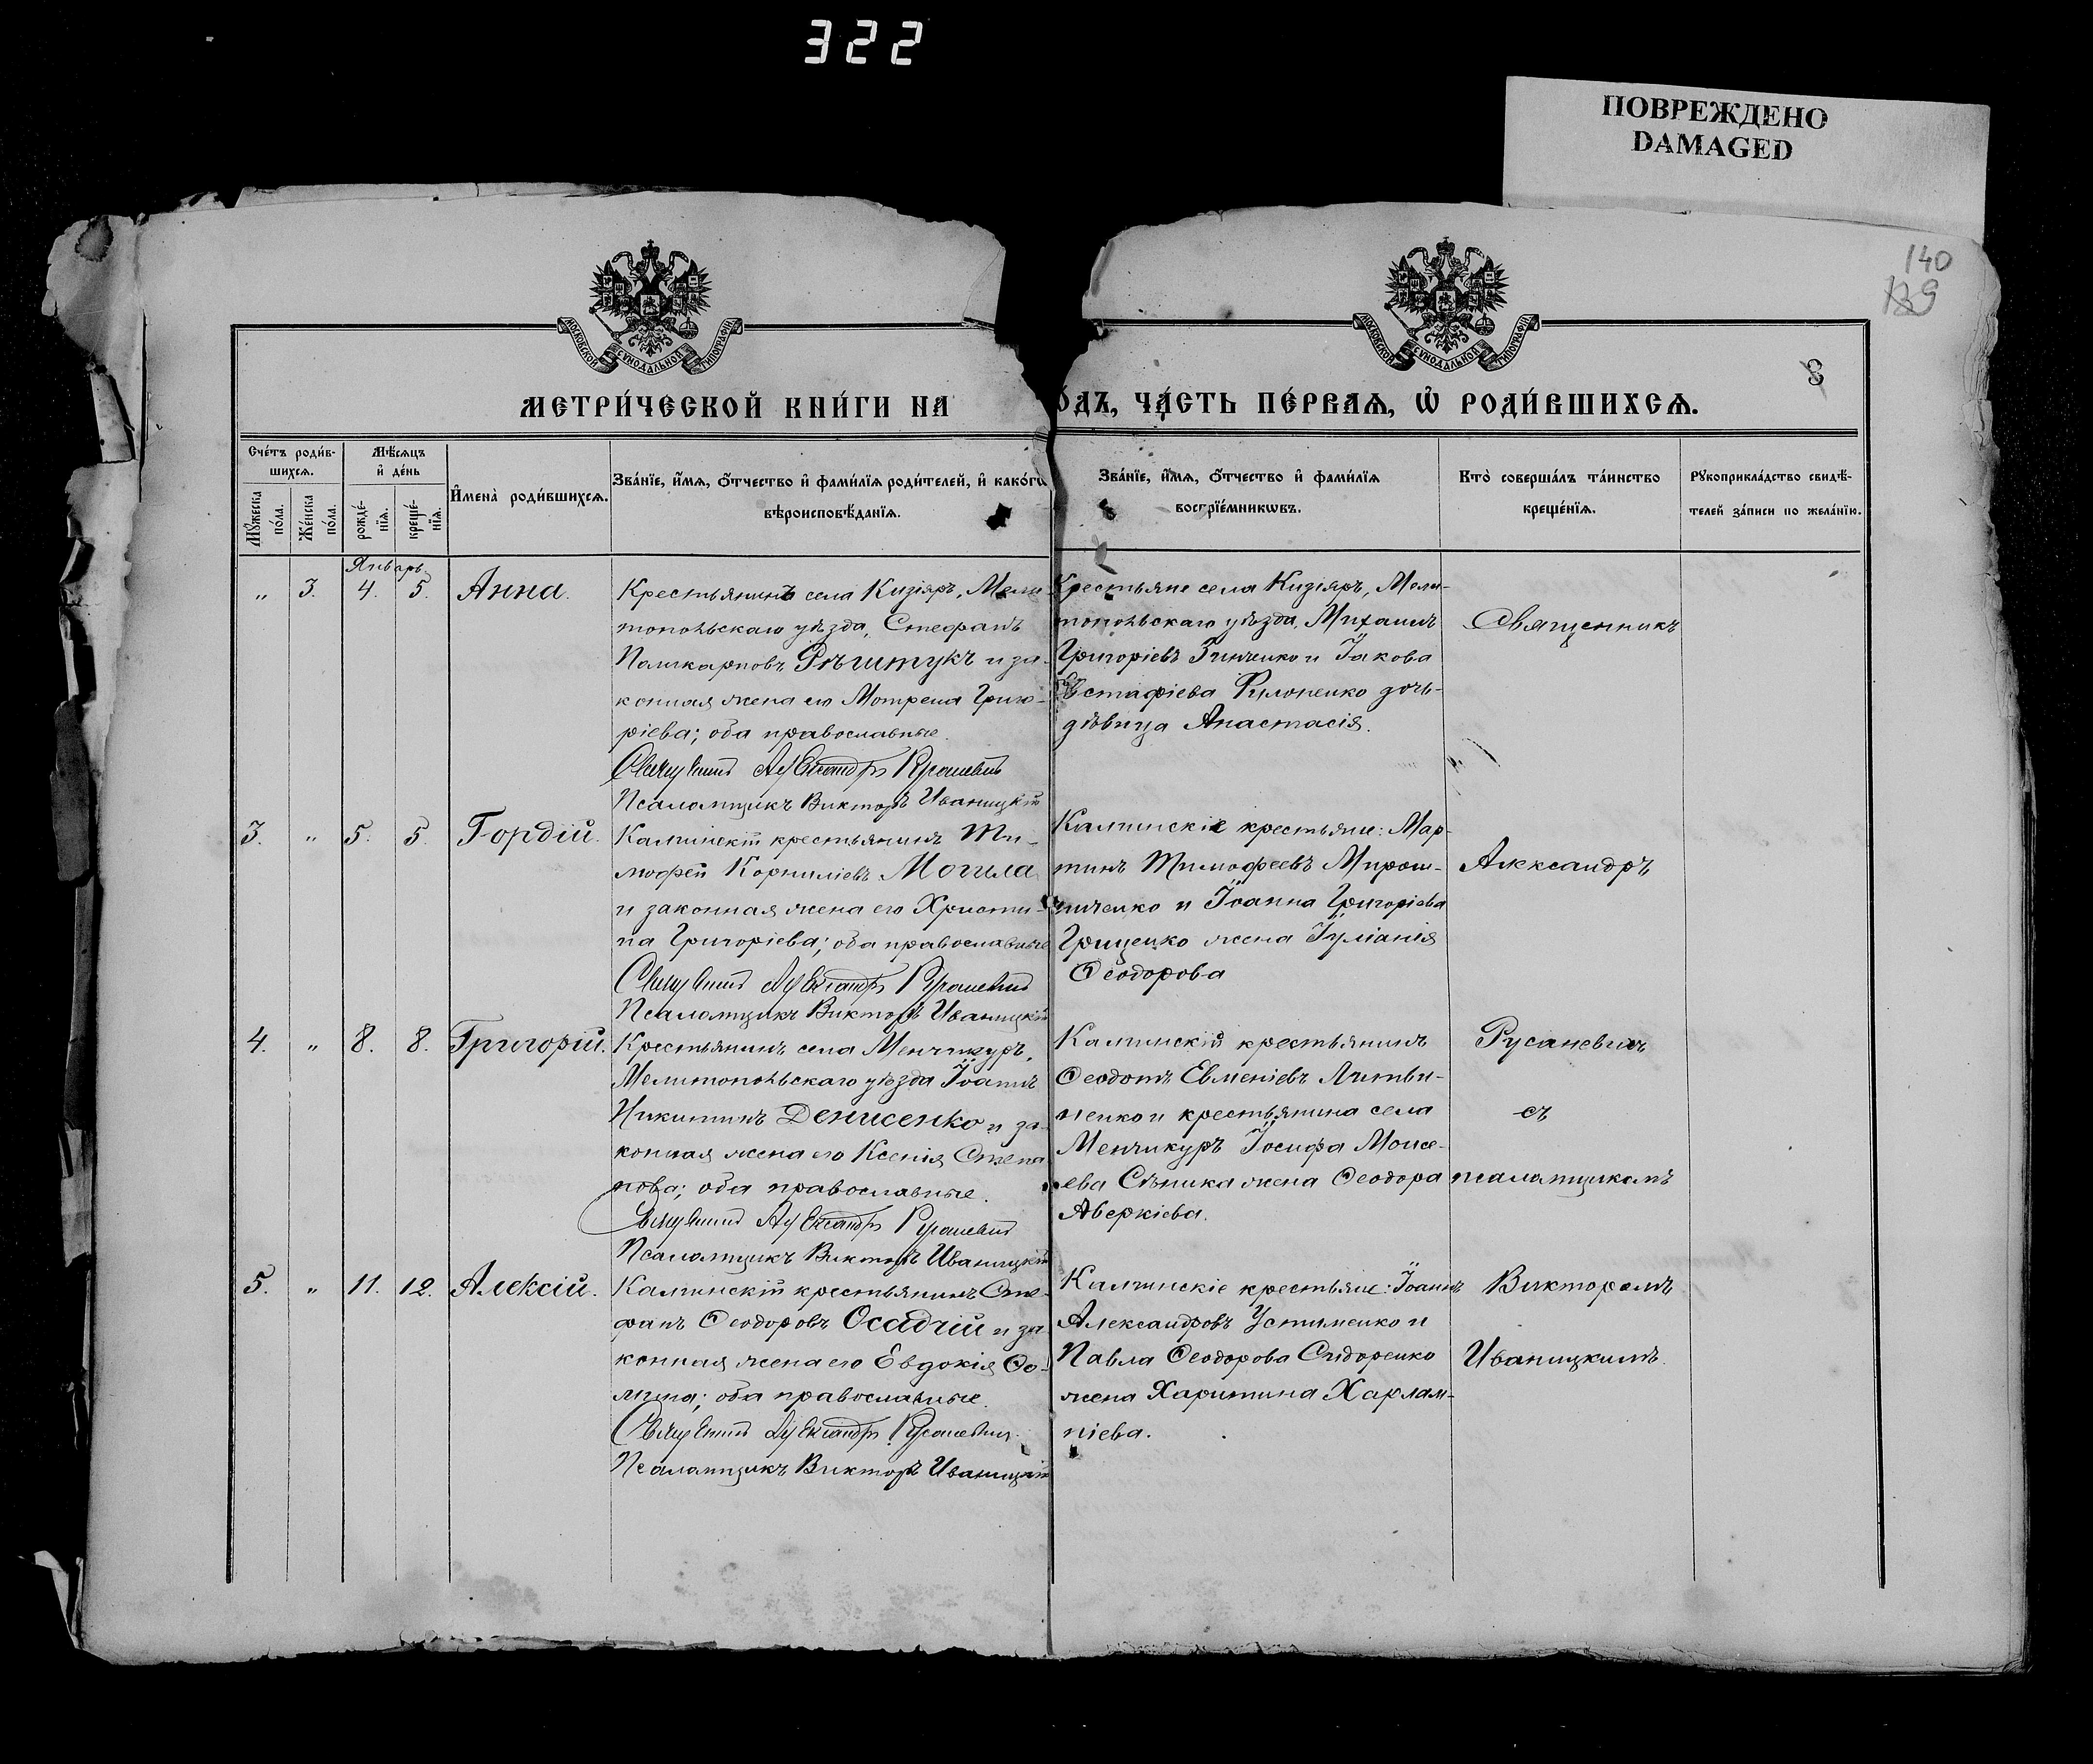 322
ПОВРЕЖДЕНО
DAMAGED
140
139
МОСКОВСКОЙ СѴНОДАЛЬНОЙ ТИПОГРАФІИ
МОСКОВСКОЙ СѴНОДАЛЬНОЙ ТИПОГРАФІИ
8
МЕТРИ́ЧЕСКОЙ КНИ́ГИ НА
О́ДЪ, ЧА́СТЬ ПЕ́РВАѦ, Ѡ҆ РОДИ́ВШИХСѦ.
Сче́тъ роди́в-
шихсѧ.
Мꙋ́жеска по́ла.
Же́нска по́ла.
Мѣ́сѧцъ
и҆ де́нь
рожде́-
нїѧ.
креще́-
нїѧ.
И҆мена̀ роди́вшихсѧ.
Зва́нїе, и҆́мѧ, ѻ҆́тчество и҆ фами́лїѧ роди́телей, и҆ како́гѡ
вѣроисповѣ́данїѧ.
Зва́нїе, и҆́мѧ, ѻ҆́тчество и҆ фами́лїѧ
воспрїе́мникѡвъ.
Кто̀ соверша́лъ та́инство
креще́нїѧ.
Рꙋкоприкла́дство свидѣ́-
телей за́писи по жела́нїю.
Январь
„ 3. 4. 5. Анна.
Крестьянинъ села Кизіяръ, Мели
топольскаго уѣзда, Стефанъ
Поликарповъ Рѣштукъ и за-
конная жена его Мотрена Григо-
ріева; оба православные.
Священникъ Александръ Русаневичъ
Псаломщикъ Викторъ Иваницкій
Крестьяне села Кизіяръ, Мели-
топольскаго уѣзда, Михаилъ
Григоріевъ Зинченко и Іакова
Евстафіева Филоненко дочь-
дѣвица Анастасія.
3. „ 5. 5. Гордій.
Калгинскій крестьянинъ Ти-
мофей Корниліевъ Могила
и законная жена его Христи-
на Григоріева; оба православные
Священникъ Александръ Русаневичъ
Псаломщикъ Викторъ Иваницкій
Калгинскіе крестьяне: Мар-
тинъ Тимофеевъ Мирош-
ниченко и Іоанна Григоріева
Грищенко жена Іуліанія
Ѳеодорова
4. „ 8. 8. Григорій.
Крестьянинъ села Менчикуръ,
Мелитопольскаго уѣзда Іоаннъ
Никитинъ Денисенко и за-
конная жена его Ксенія Степа
нова; оба православные.
Священникъ Александръ Русаневичъ
Псаломщикъ Викторъ Иваницкій
Калгинскій крестьянинъ
Ѳеодотъ Евменіевъ Литви-
ненко и крестьянина села
Менчикуръ Іосифа Моисе-
ева Сѣника жена Ѳеодора
Аверкіева.
5. „ 11. 12. Алексій.
Калгинскій крестьянинъ Сте-
фанъ Ѳеодоровъ Осадчій и за
конная жена его Евдокія Ѳо-
мина; оба православные.
Священникъ Александръ Русаневичъ
Псаломщикъ Викторъ Иваницкій
Калгинскіе крестьяне: Іоаннъ
Александровъ Устименко и
Павла Ѳеодорова Сидоренко
жена Харитина Харлам-
піева.
Священникъ
Александръ
Русаневичъ
съ
псаломщикомъ
Викторомъ
Иваницкимъ.